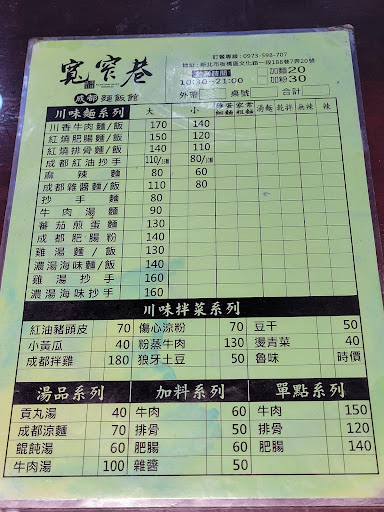 訂餐專線：0973-598-707
寬窄巷
地址：新北市板橋區文化路一段188巷7弄20號
營業時間
10:30~21:00
加麵20
加粉30
成都麵飯館
外帶 桌號 合計
川味麵系列 大 小 雞蛋細麵 家常粗麵 湯麵 乾拌 無辣 辣
川香牛肉麵/飯 170 140
紅燒肥腸麵/飯 150 120
紅燒排骨麵/飯 140 110
成都紅油抄手 110/10顆 80/
麻辣麵 80 60
成都雜醬麵/飯 110 80
抄手麵 80
牛肉湯麵 90
蕃茄煎蛋麵 130
成都肥腸粉 140
雞湯麵/飯 130
濃湯海味麵/飯 140
雞湯抄手 140
濃湯海味抄手 160
川味拌菜系列
紅油豬頭皮 70 傷心涼粉 70 豆干 50
小黃瓜 40 粉蒸牛肉 130 燙青菜 40
成都拌雞 180 狼牙土豆 50 魯味 時價
湯品系列 加料系列 單點系列
貢丸湯 40 牛肉 60 牛肉 150
成都涼麵 70 排骨 50 排骨 120
餛飩湯 60 肥腸 60 肥腸 140
牛肉湯 100 雜醬 50